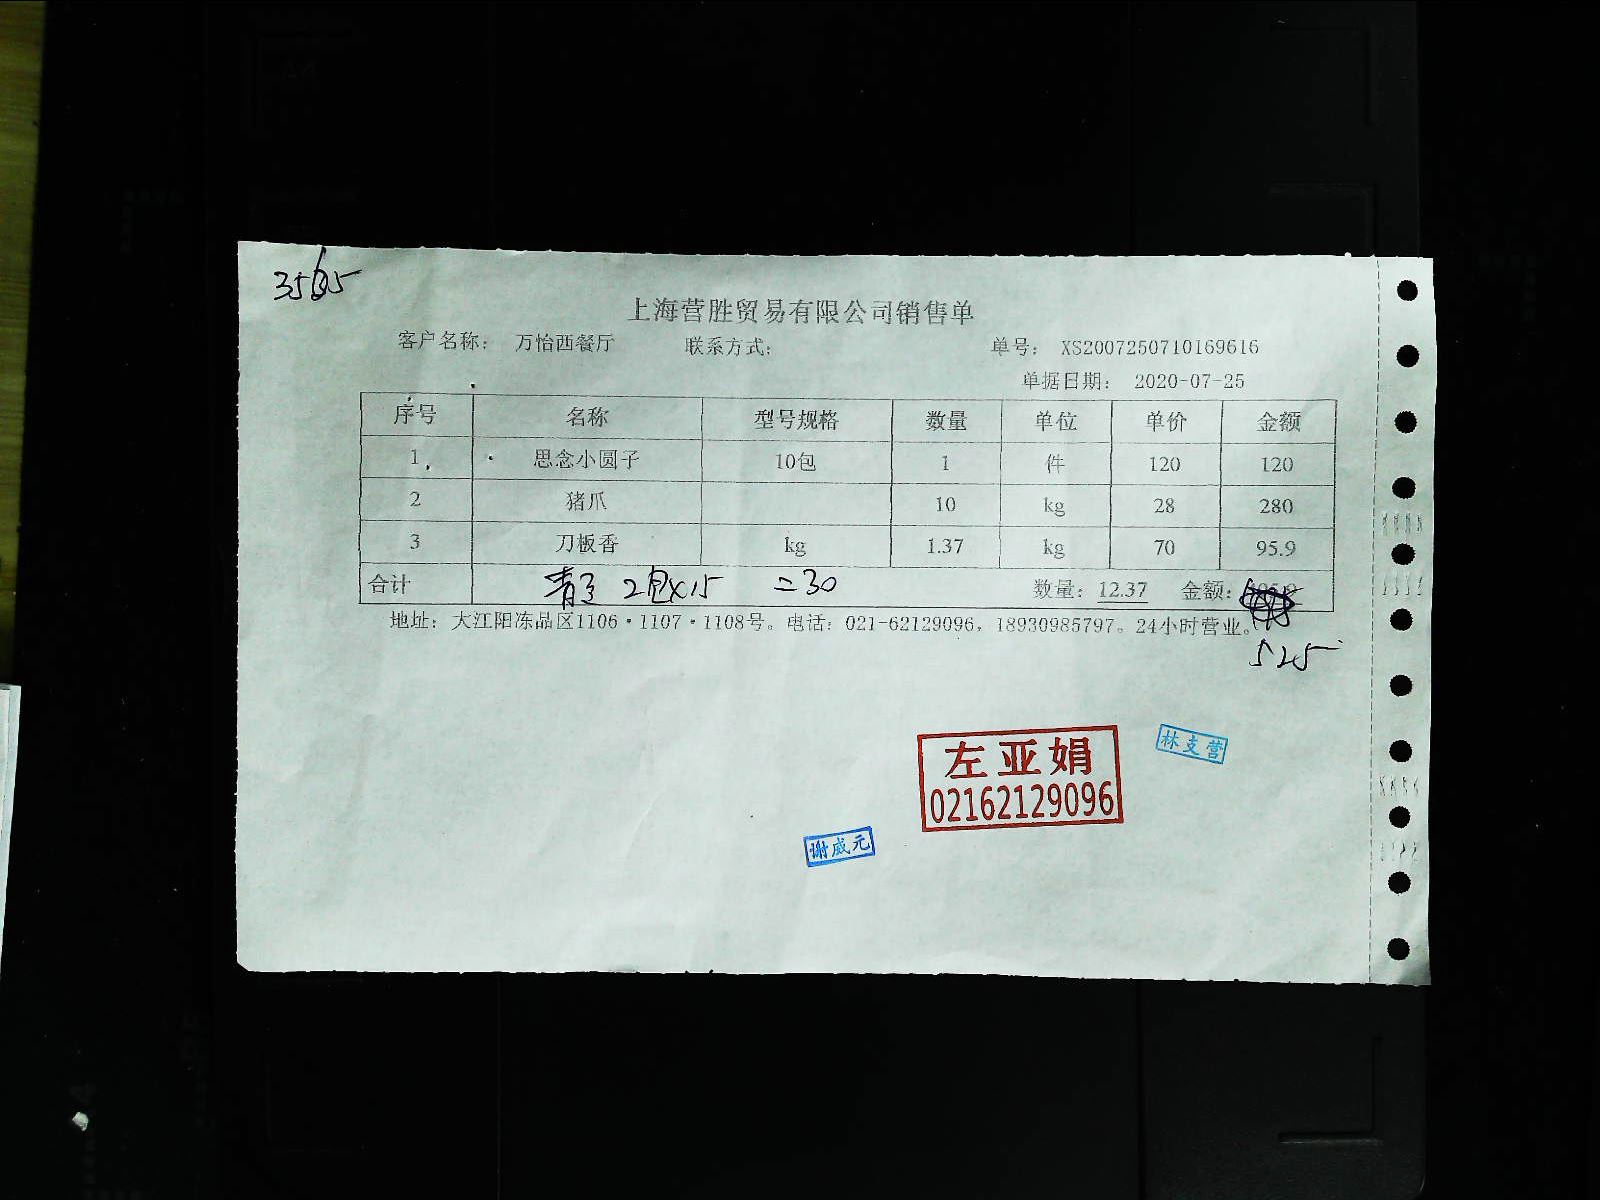 上海营胜贸易有限公司销售单
客户名称： 万怡西餐厅 联系方式： 单号： XS2007250710169616
单据日期： 2020-07-25
序号 名称 型号规格 数量 单位 单价 金额
1 思念小圆子 10包 1 件 120 120
2 猪爪 10 kg 28 280
3 刀板香 kg 1.37 kg 70 95.9
合计 青豆 2包×15 =30 数量：12.37 金额：
地址：大江阳冻品区1106·1107·1108号。电话：021-62129096，18930985797。24小时营业。
525
左亚娟
02162129096
林支营
谢威元